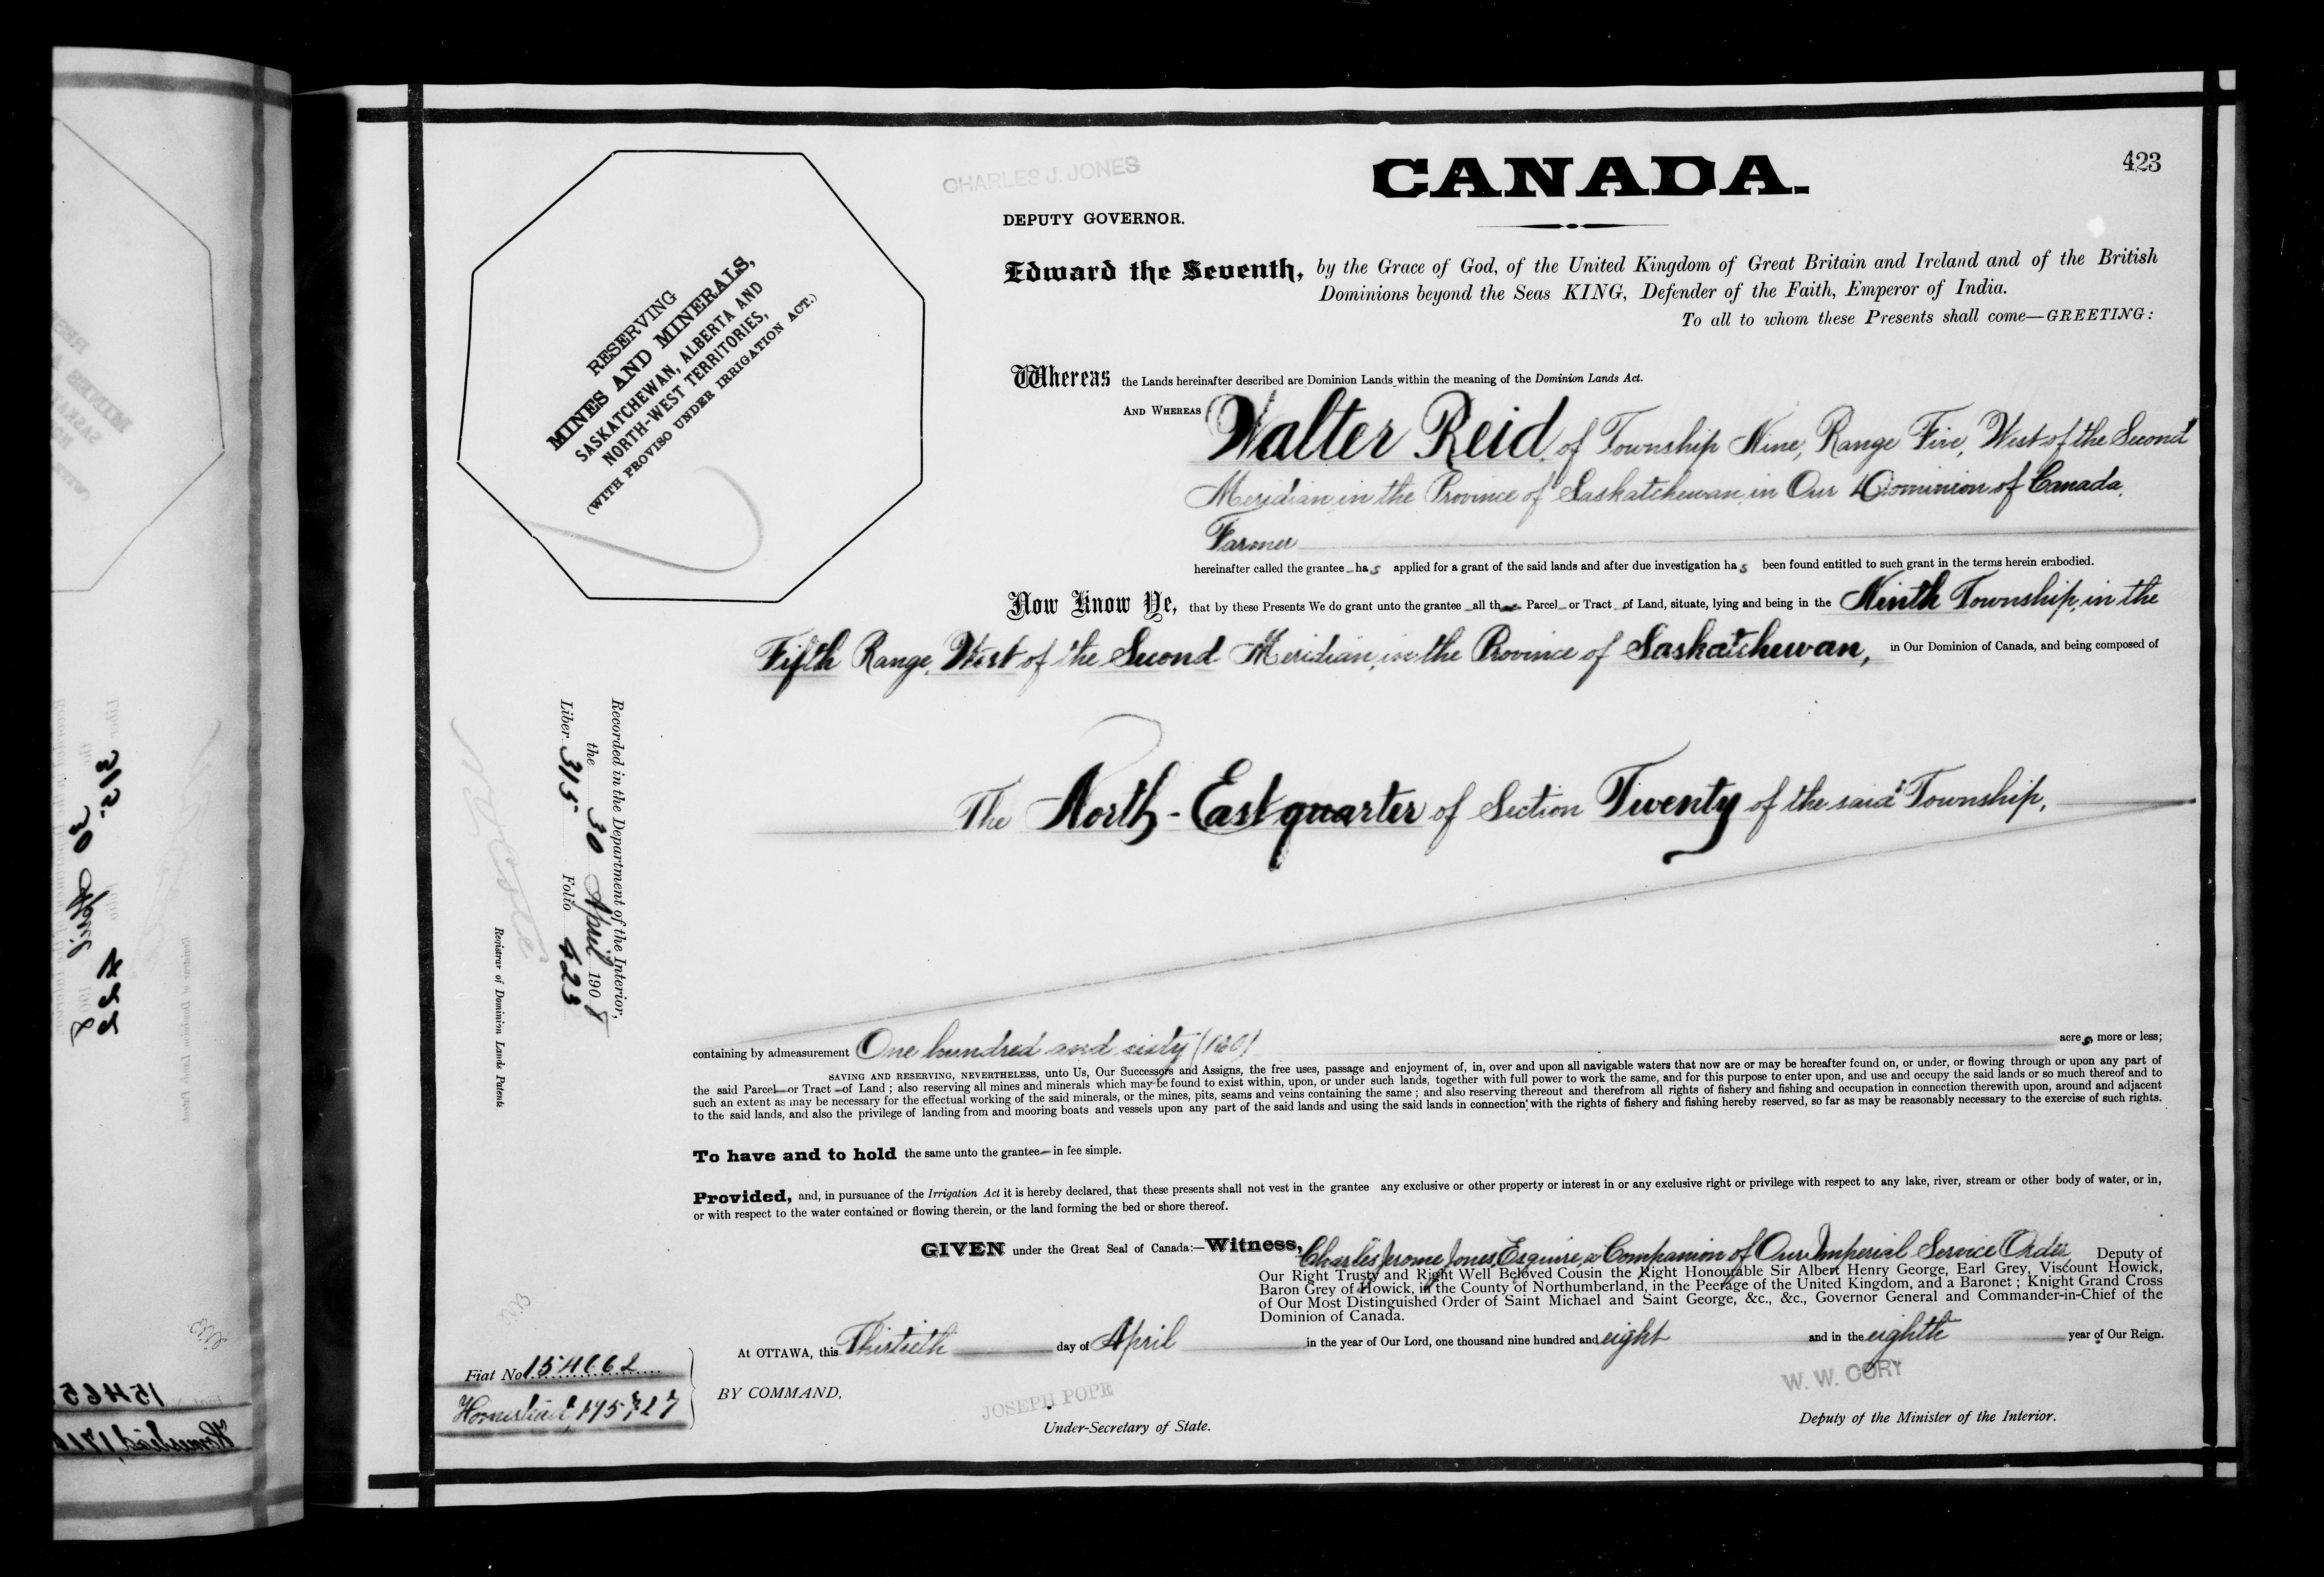 423
CHARLES J. JONES
CANADA.
DEPUTY GOVERNOR.
RESERVING
MINES AND MINERALS,
SASKATCHEWAN, ALBERTA AND
NORTH-WEST TERRITORIES,
(WITH PROVISO UNDER IRRIGATION ACT.)
Edward the Seventh, by the Grace of God, of the United Kingdom of Great Britain and Ireland and of the British
Dominions beyond the Seas KING, Defender of the Faith, Emperor of India.
To all to whom these Presents shall come—GREETING:
Whereas the Lands hereinafter described are Dominion Lands within the meaning of the Dominion Lands Act.
AND WHEREAS Walter Reid of Township Nine, Range Five, West of the Second
Meridian, in the Province of Saskatchewan, in Our Dominion of Canada,
Farmer
hereinafter called the grantee has applied for a grant of the said lands and after due investigation has been found entitled to such grant in the terms herein embodied.
Now Know Ye, that by these Presents We do grant unto the grantee all that Parcel or Tract of Land, situate, lying and being in the Ninth Township, in the
Fifth Range, West of the Second Meridian, in the Province of Saskatchewan, in Our Dominion of Canada, and being composed of
The North-East quarter of Section Twenty of the said Township,
Recorded in the Department of the Interior,
the 30 April 1908
Liber 315 Folio 423
Registrar of Dominion Lands Patents
containing by admeasurement One hundred and sixty (160) acres more or less;
SAVING AND RESERVING, NEVERTHELESS, unto Us, Our Successors and Assigns, the free uses, passage and enjoyment of, in, over and upon all navigable waters that now are or may be hereafter found on, or under, or flowing through or upon any part of
the said Parcel or Tract of Land; also reserving all mines and minerals which may be found to exist within, upon, or under such lands, together with full power to work the same, and for this purpose to enter upon, and use and occupy the said lands or so much thereof and to
such an extent as may be necessary for the effectual working of the said minerals, or the mines, pits, seams and veins containing the same; and also reserving thereout and therefrom all rights of fishery and fishing and occupation in connection therewith upon, around and adjacent
to the said lands, and also the privilege of landing from and mooring boats and vessels upon any part of the said lands and using the said lands in connection with the rights of fishery and fishing hereby reserved, so far as may be reasonably necessary to the exercise of such rights.
To have and to hold the same unto the grantee in fee simple.
Provided, and, in pursuance of the Irrigation Act it is hereby declared, that these presents shall not vest in the grantee any exclusive or other property or interest in or any exclusive right or privilege with respect to any lake, river, stream or other body of water, or in,
or with respect to the water contained or flowing therein, or the land forming the bed or shore thereof.
GIVEN under the Great Seal of Canada:—Witness, Charles Jerome Jones, Esquire, a Companion of Our Imperial Service Order Deputy of
Our Right Trusty and Right Well Beloved Cousin the Right Honourable Sir Albert Henry George, Earl Grey, Viscount Howick,
Baron Grey of Howick, in the County of Northumberland, in the Peerage of the United Kingdom, and a Baronet; Knight Grand Cross
of Our Most Distinguished Order of Saint Michael and Saint George, &c., &c., Governor General and Commander-in-Chief of the
Dominion of Canada.
At OTTAWA, this Thirtieth day of April in the year of Our Lord, one thousand nine hundred and eight and in the eighth year of Our Reign.
Fiat No 154662
Homestead,
BY COMMAND,
JOSEPH POPE
Under-Secretary of State.
W. W. CORY
Deputy of the Minister of the Interior.